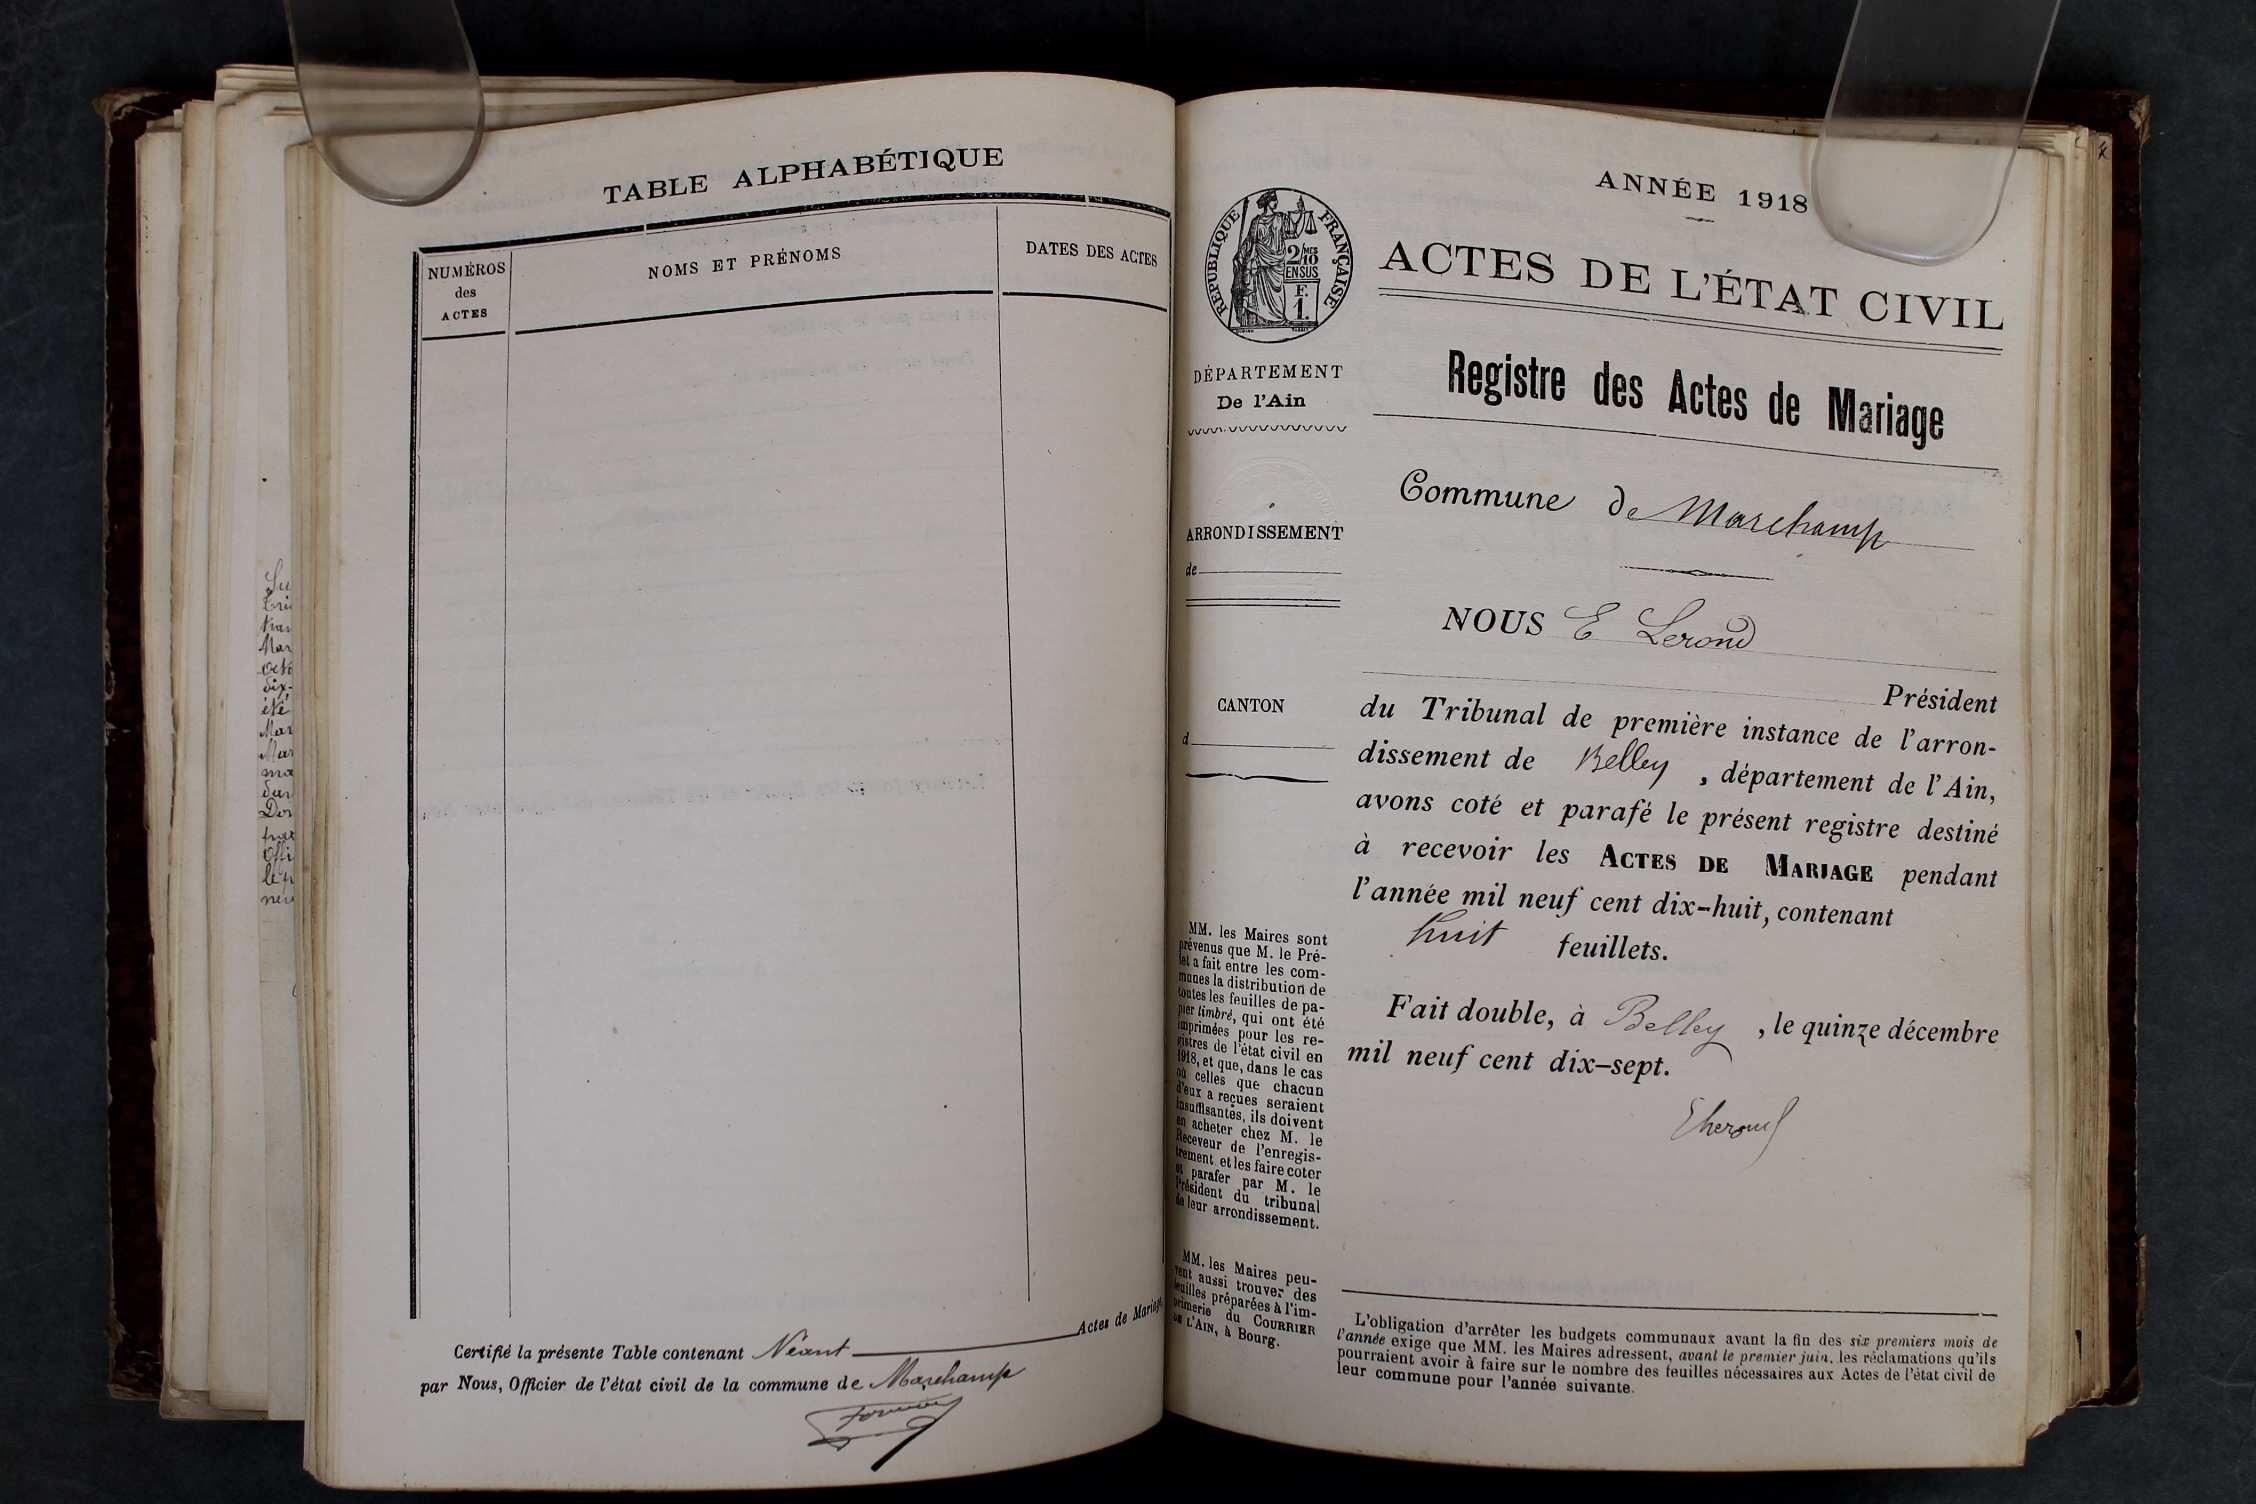 TABLE ALPHABÉTIQUE
NUMÉROS
des
ACTES
NOMS ET PRÉNOMS
DATES DES ACTES
Certifié la présente Table contenant Néant Actes de Mariage,
par Nous, Officier de l'état civil de la commune de Marchamp
ANNÉE 1918
RÉPUBLIQUE FRANÇAISE
2/MES
10
EN SUS
F.
1.
ACTES DE L'ÉTAT CIVIL
Registre des Actes de Mariage
DÉPARTEMENT
De l'Ain
ARRONDISSEMENT
de
CANTON
d
MM. les Maires sont
prévenus que M. le Pré-
fet a fait entre les com-
munes la distribution de
toutes les feuilles de pa-
pier timbré, qui ont été
imprimées pour les re-
gistres de l'état civil en
1918, et que, dans le cas
où celles que chacun
d'eux a reçues seraient
insuffisantes, ils doivent
en acheter chez M. le
Receveur de l'enregis-
trement et les faire coter
et parafer par M. le
Président du tribunal
de leur arrondissement.
MM. les Maires peu-
vent aussi trouver des
feuilles préparées à l'im-
primerie du COURRIER
DE L'AIN, à Bourg.
Commune de Marchamp
NOUS E Lerond
Président
du Tribunal de première instance de l'arron-
dissement de Belley, département de l'Ain,
avons coté et parafé le présent registre destiné
à recevoir les ACTES DE MARIAGE pendant
l'année mil neuf cent dix-huit, contenant
huit feuillets.
Fait double, à Belley, le quinze décembre
mil neuf cent dix-sept.
L'obligation d'arrêter les budgets communaux avant la fin des six premiers mois de
l'année exige que MM. les Maires adressent, avant le premier juin, les réclamations qu'ils
pourraient avoir à faire sur le nombre des feuilles nécessaires aux Actes de l'état civil de
leur commune pour l'année suivante.